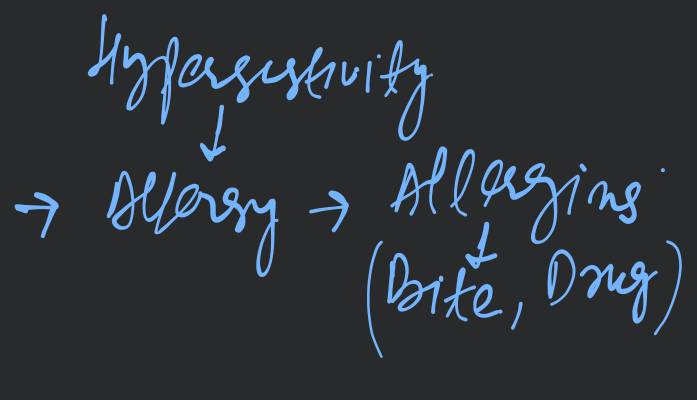 Hypersestivity
↓
→ Allergy → Allergins
↓
(Bite, Drug)